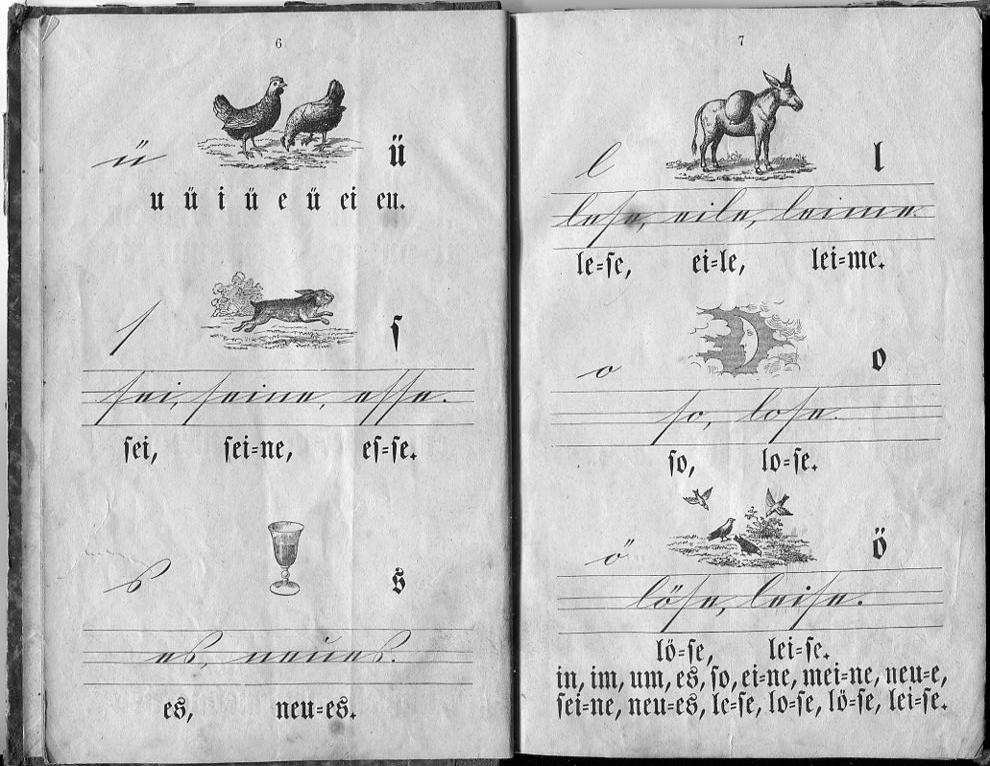 6
ü ü
u ü i ü e ü ei eu.
ſ ſ
ſei, ſeine, eſſe.
ſei, ſei⸗ne, eſ⸗ſe.
s s
es, neues.
es, neu⸗es.
7
l l
leſe, eile, leime.
le⸗ſe, ei⸗le, lei⸗me.
o o
ſo, loſe.
ſo, lo⸗ſe.
ö ö
löſe, leiſe.
lö⸗ſe, lei⸗ſe.
in, im, um, es, ſo, ei⸗ne, mei⸗ne, neu⸗e,
ſei⸗ne, neu⸗es, le⸗ſe, lo⸗ſe, lö⸗ſe, lei⸗ſe.